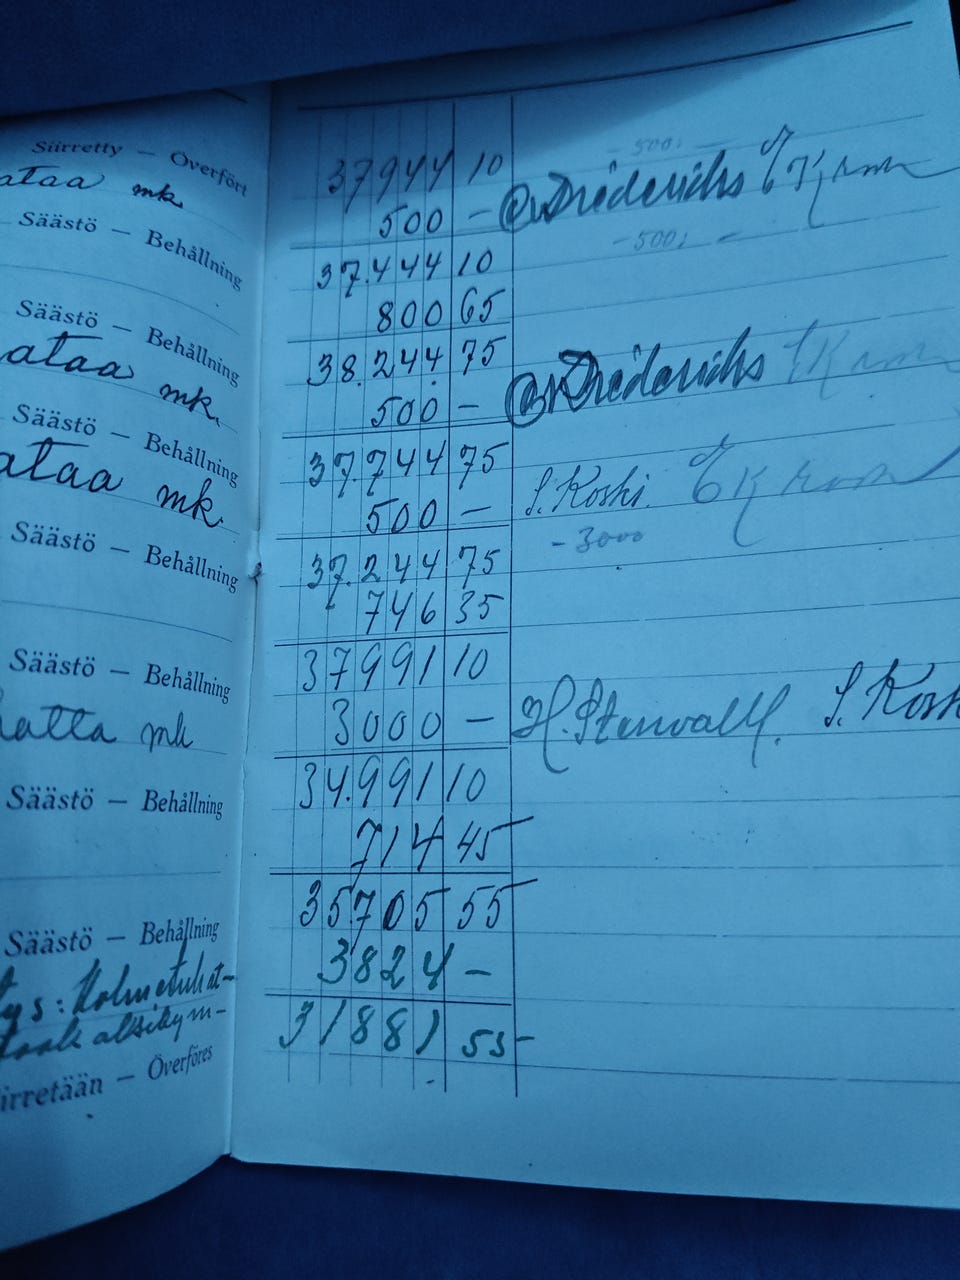 Siirretty — Överfört 37944 10 - 500:
ataa mk. 500 — Dréderichs
Säästö — Behållning 37.444 10 - 500: -
800 65
Säästö — Behållning 38.244 75
ataa mk. 500 — Dréderichs
Säästö — Behållning 37.744 75
ataa mk. 500 — S. Koski.
Säästö — Behållning 37.244 75 - 3000
746 35
Säästö — Behållning 37991 10
hatta mk 3000 — H. Stenvall. S. Kosk
Säästö — Behållning 34.991 10
714 45
Säästö — Behållning 35705 55
tys: Kolmetuhat- 3824 —
31881 55
irretään — Överföres